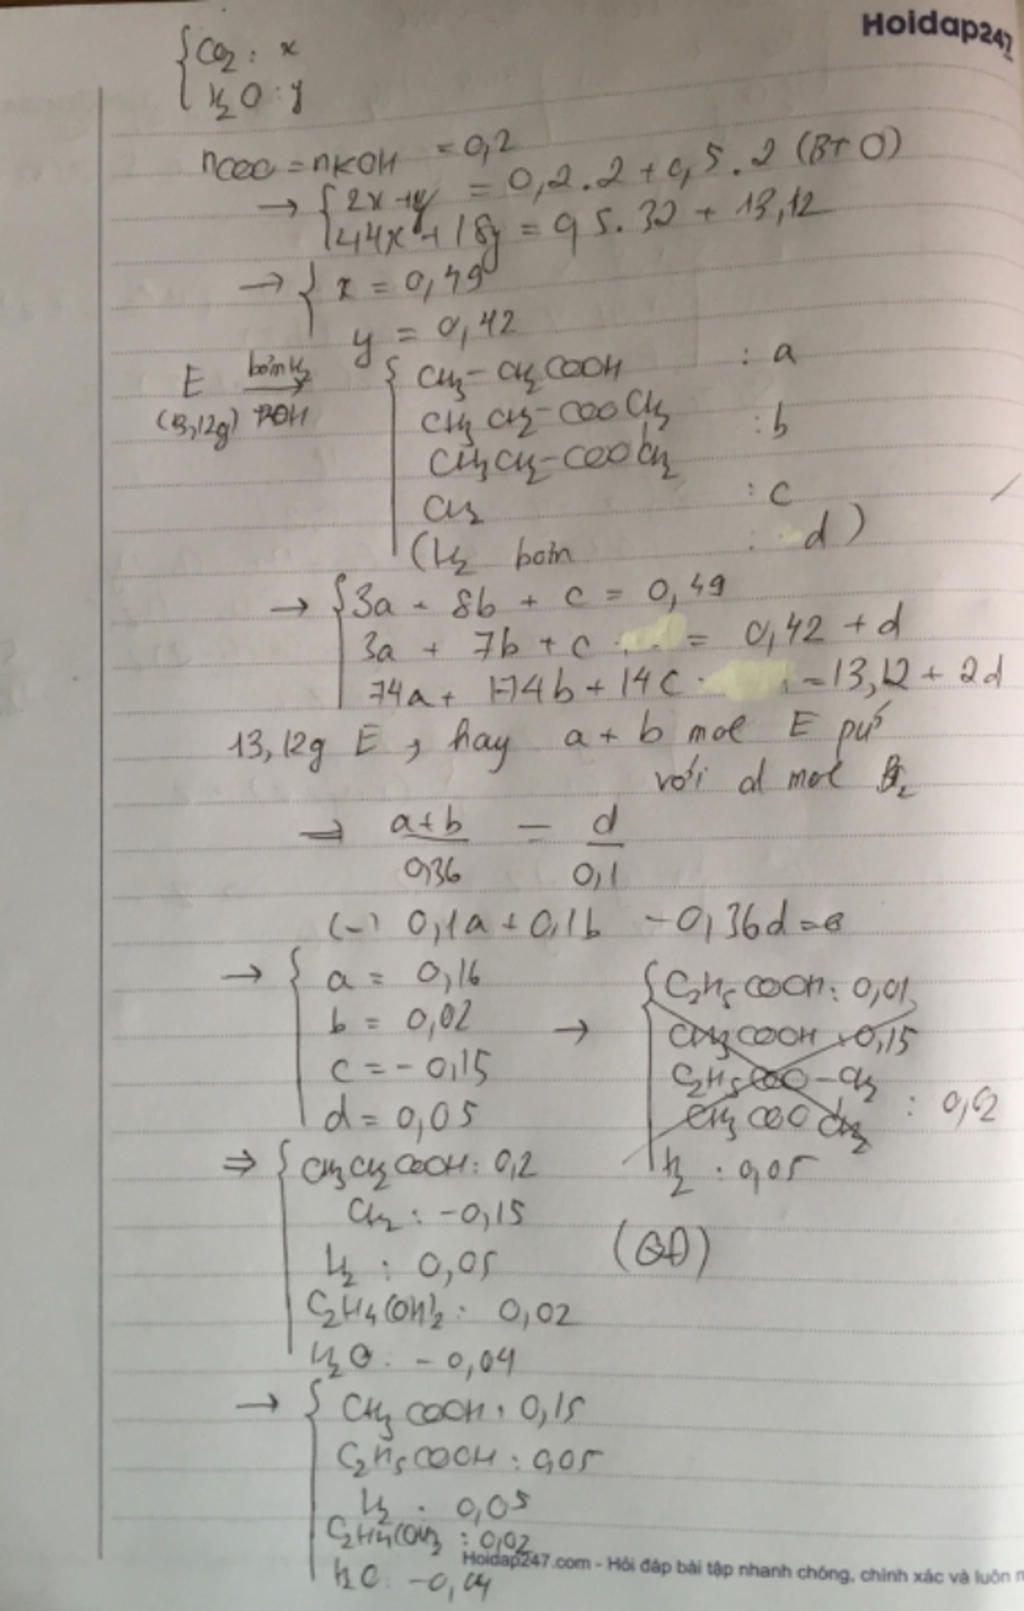 Hoidap247
CO2 : x
H2O : y
nCOO = nKOH = 0,2
→ 2x + y = 0,2.2 + 0,5.2 (BT O)
44x + 18y = 0,5.32 + 13,12
→ x = 0,49
y = 0,42
E bơm H2 → CH3-CH2COOH : a
(13,12g) ROH CH3CH2-COOCH2 : b
CH3CH2-COOCH2
CH2 : c
(H2 bơm : d)
→ 3a + 8b + c = 0,49
3a + 7b + c = 0,42 + d
74a + 174b + 14c = 13,12 + 2d
13,12g E, hay a + b mol E pứ
với d mol Br2
→ a+b / 0,36 = d / 0,1
(-) 0,1a + 0,1b - 0,36d = 0
→ a = 0,16
b = 0,02
c = -0,15
d = 0,05
→ C2H5COOH : 0,01
CH3COOH : 0,15
C2H5COO-CH2
CH3COOCH2 : 0,02
H2 : 0,05
⇒ CH3CH2COOH : 0,2
CH2 : -0,15
H2 : 0,05 (QĐ)
C2H4(OH)2 : 0,02
H2O : -0,04
→ CH3COOH : 0,15
C2H5COOH : 0,05
H2 : 0,05
C2H4(OH)2 : 0,02
H2O : -0,04
Hoidap247.com - Hỏi đáp bài tập nhanh chóng, chính xác và luôn